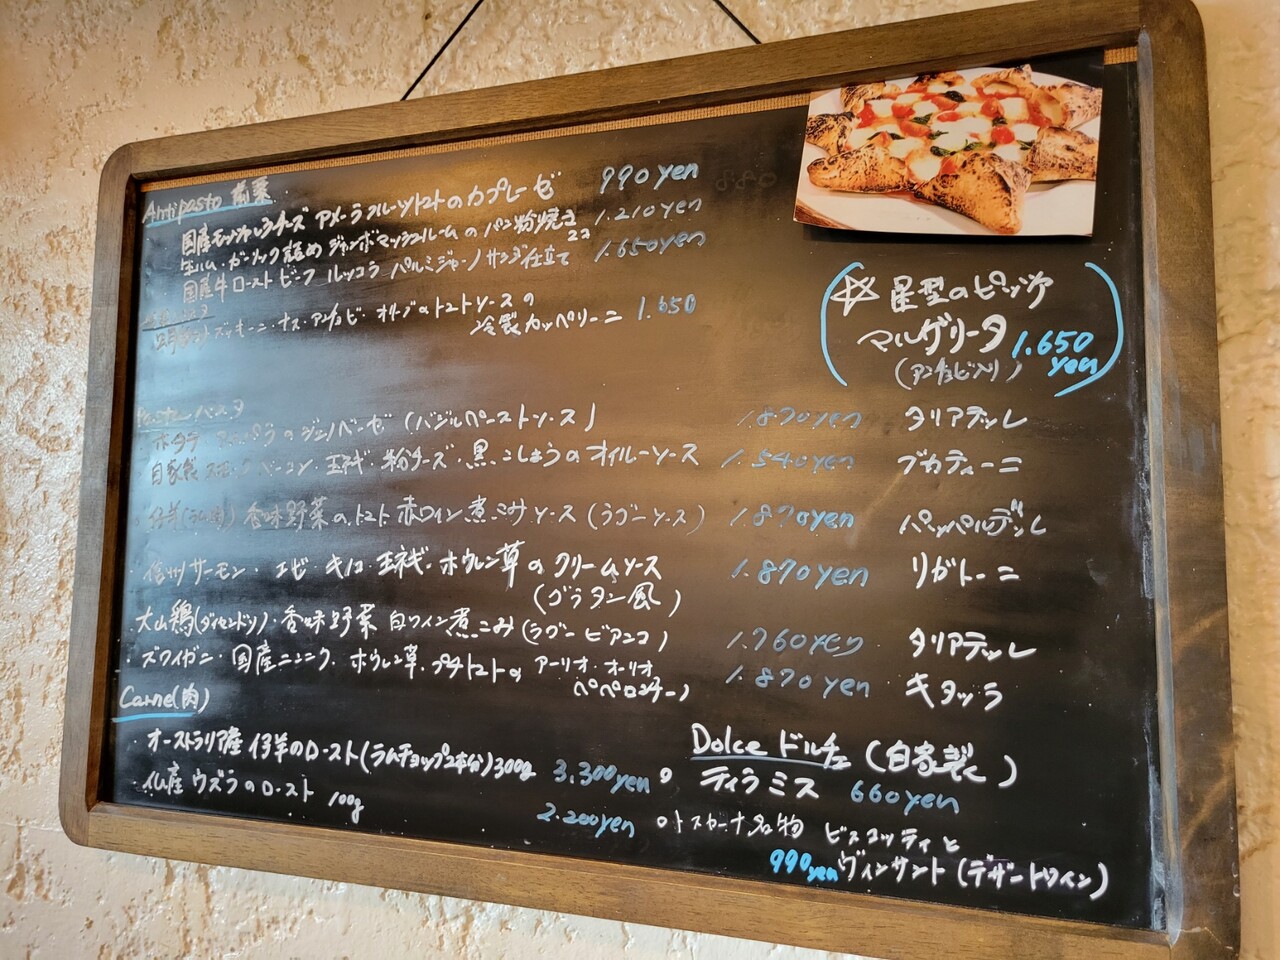 Antipasto 前菜
国産モッツァレラチーズ アメーラフルーツトマトのカプレーゼ 990yen
生ハム・ガーリック詰め ジャンボマッシュルームのパン粉焼き 2コ 1.210yen
国産牛ローストビーフ ルッコラ パルミジャーノ サラダ仕立て 1.650yen
ズッキーニ・ナス・アンチョビ・オリーブのトマトソースの
冷製カッペリーニ 1.650
☆ 星型のピッツァ
マルゲリータ 1.650
yen
(アンチョビ入り)
Pasta パスタ
ホタテ のジェノベーゼ (バジルペーストソース) 1.870yen タリアテッレ
自家製 ベーコン・玉ネギ・粉チーズ・黒こしょうのオイルソース 1.540yen ブカティーニ
仔羊(ラム肉) 香味野菜のトマト赤ワイン煮こみソース (ラグーソース) 1.870yen パッパルデッレ
信州サーモン・エビ・キノコ・玉ネギ・ホウレン草のクリームソース 1.870yen リガトーニ
(グラタン風)
大山鶏(ダイセンドリ)・香味野菜 白ワイン煮こみ (ラグー ビアンコ) 1.760yen タリアテッレ
ズワイガニ・国産ニンニク・ホウレン草・プチトマトの アーリオ・オーリオ 1.870yen キタッラ
ペペロンチーノ
Carne(肉)
・オーストラリア産 仔羊のロースト(ラムチョップ2本分)300g 3.300yen
・仏産 ウズラのロースト 100g 2.200yen
Dolce ドルチェ (自家製)
○ ティラミス 660yen
○トスカーナ名物 ビスコッティと
990yen ヴィンサント (デザートワイン)